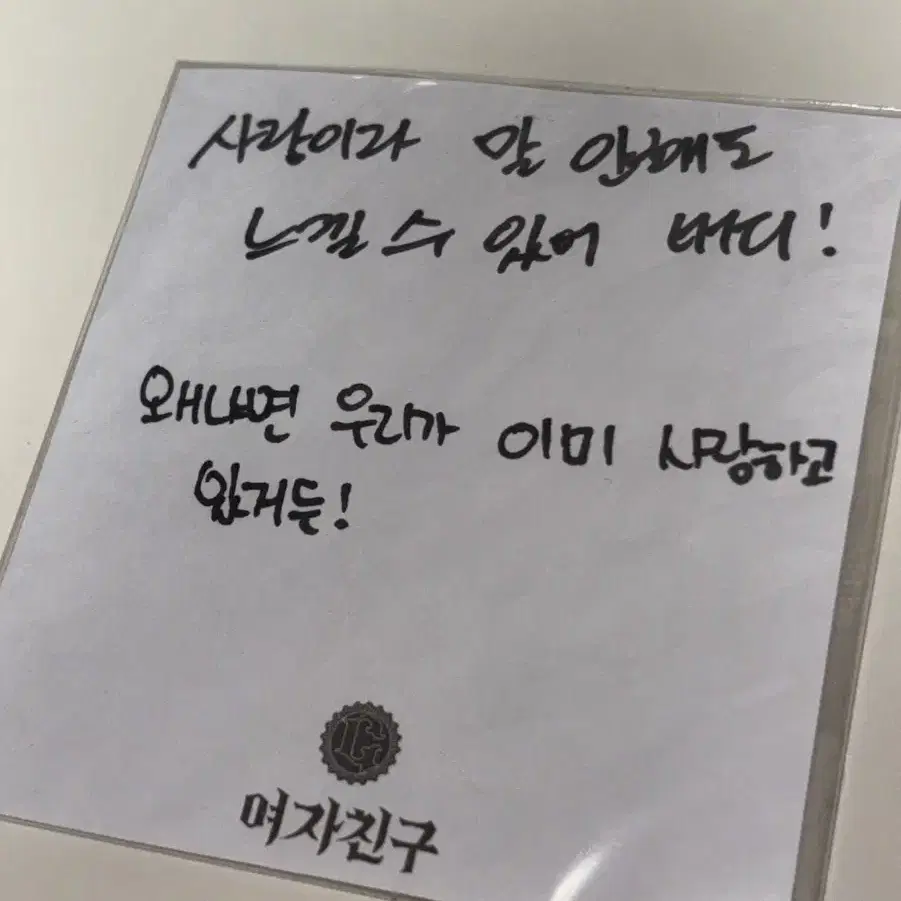 사랑이라 말 안해도
느낄 수 있어 버디!
왜냐면 우리가 이미 사랑하고
있거든!
LG
여자친구